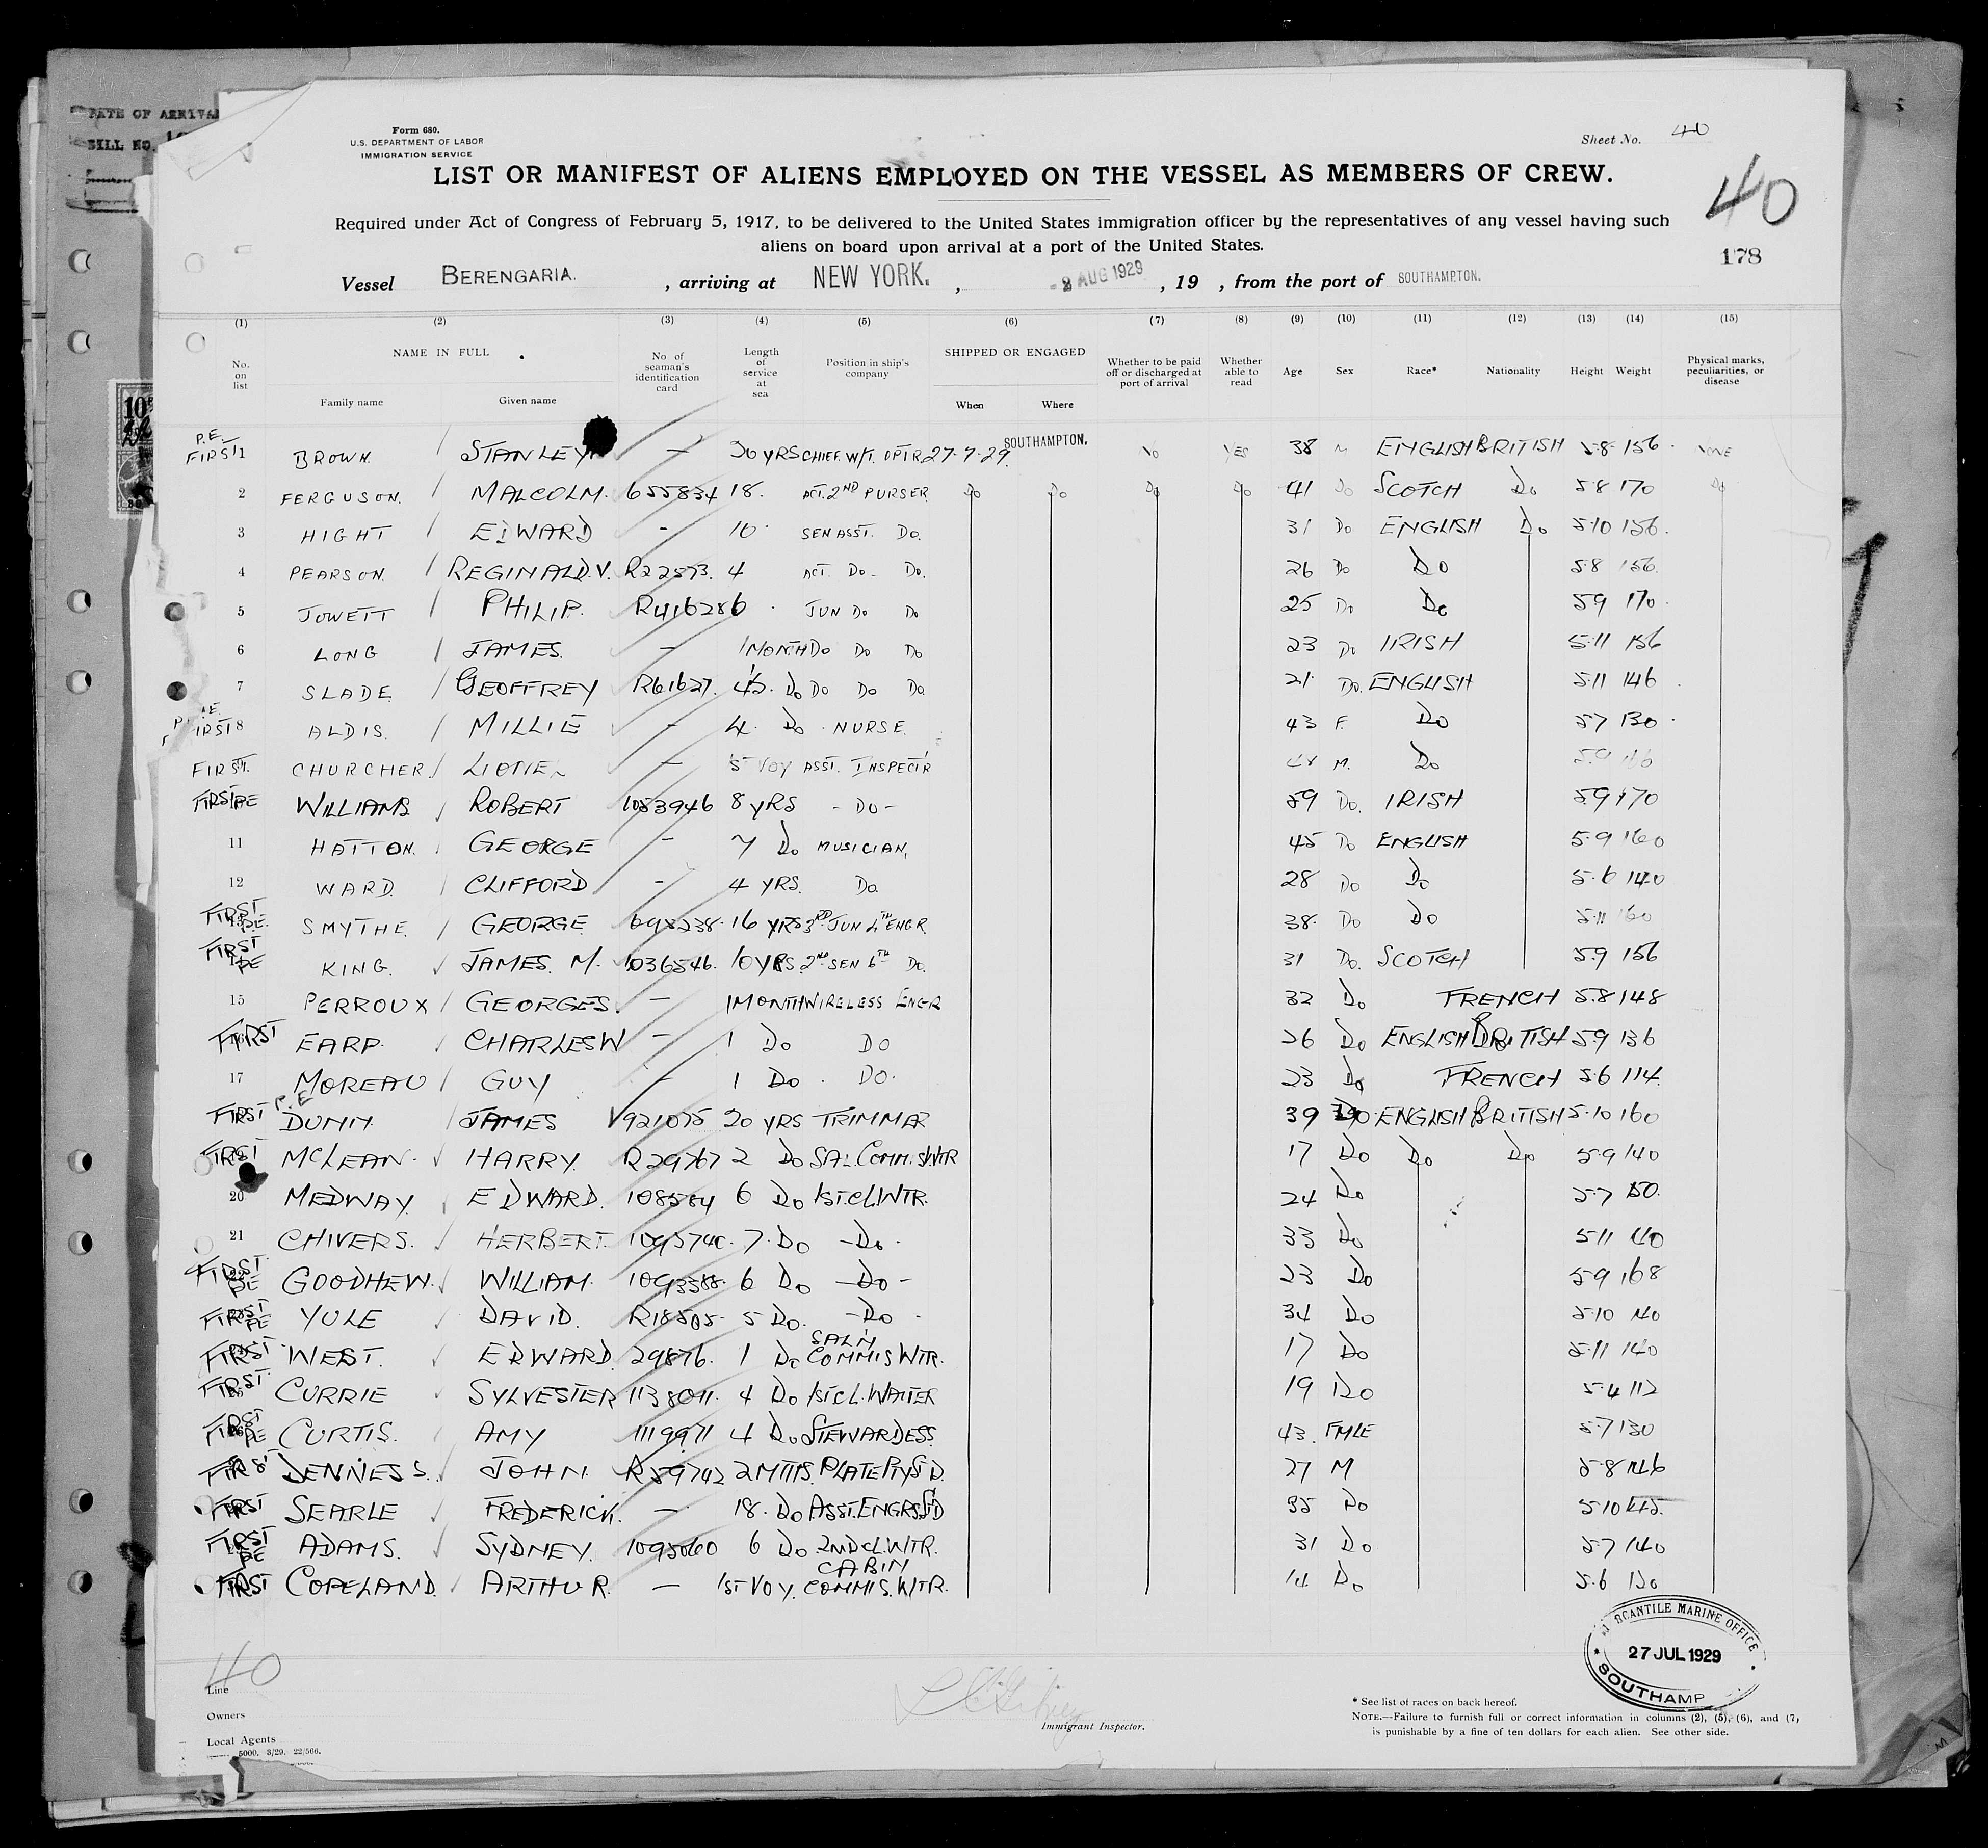 DATE OF ARRIVAL
BILL NO.
Form 680.
U.S. DEPARTMENT OF LABOR
IMMIGRATION SERVICE
Sheet No. 40
LIST OR MANIFEST OF ALIENS EMPLOYED ON THE VESSEL AS MEMBERS OF CREW.
40
Required under Act of Congress of February 5, 1917, to be delivered to the United States immigration officer by the representatives of any vessel having such
aliens on board upon arrival at a port of the United States.
178
Vessel BERENGARIA. , arriving at NEW YORK. , AUG 1929 , 19 , from the port of SOUTHAMPTON.
(1) (2) (3) (4) (5) (6) (7) (8) (9) (10) (11) (12) (13) (14) (15)
No. on list NAME IN FULL Family name Given name No. of seaman's identification card Length of service at sea Position in ship's company SHIPPED OR ENGAGED When Where Whether to be paid off or discharged at port of arrival Whether able to read Age Sex Race* Nationality Height Weight Physical marks, peculiarities, or disease
P.E. FIRST 1 BROWN. STANLEY — 30 YRS CHIEF W/T. OPTR 27.7.29. SOUTHAMPTON. NO YES 38 M ENGLISH BRITISH 5.8 156 NONE
2 FERGUSON. MALCOLM. 655834 18. ACT. 2ND PURSER Do Do Do Do 41 Do SCOTCH Do 5.8 170 Do
3 HIGHT EDWARD - 10 SEN ASST. Do. 31 Do ENGLISH Do 5.10 156.
4 PEARSON. REGINALD.V. R22573. 4 ACT. Do. Do. 26 Do Do 5.8 156.
5 JOWETT PHILIP. R41628 6 JUN Do Do 25 Do Do 5.9 170.
6 LONG JAMES. - 1 MONTH Do Do Do 23 Do IRISH 5.11 156
7 SLADE GEOFFREY R61627. Do Do Do Do 21 Do. ENGLISH 5.11 146
P.E. FIRST 8 ALDIS. MILLIE - 4. Do NURSE. 43 F. Do 5.7 130.
FIRST. CHURCHER. LIONEL - 1ST VOY ASST. INSPECTR M. Do 5.9
FIRST PE WILLIAMS ROBERT 1053946 8 YRS - DO - 59 Do. IRISH 5.9 170
11 HATTON. GEORGE - 7 Do MUSICIAN. 45 Do ENGLISH 5.9 160
12 WARD. CLIFFORD - 4 YRS. Do 28 Do Do 5.6 140
FIRST PE. SMYTHE. GEORGE 698238. 16 YRS 3RD JUN 4TH ENGR 38. Do Do 5.11 160
FIRST PE KING. JAMES. M. 1036546. 10 YRS. 2ND SEN 6TH Do. 31 Do. SCOTCH 5.9 156
15 PERROUX GEORGES. — 1 MONTH WIRELESS ENGR 32 Do FRENCH 5.8 148
FIRST EARP. CHARLES W — 1 Do DO 26 Do ENGLISH BRITISH 5.9 136
17 MOREAU GUY - 1 Do. DO. 23 Do FRENCH 5.6 114.
FIRST P.E DUNN. JAMES 921075 20 YRS TRIMMER 39 Do. ENGLISH BRITISH 5.10 160
FIRST MCLEAN. HARRY. R29767 2 Do SAL. COMMIS. WTR 17 Do Do Do 5.9 140
20 MEDWAY. EDWARD. 108584 6 Do 1ST. CL. WTR. 24 Do 5.7 150.
21 CHIVERS. HERBERT. 1095740. 7. Do - Do. 33 Do 5.11 140
FIRST PE GOODHEW. WILLIAM. 1093588. 6 Do - Do - 23 Do 5.9 168
FIRST PE YULE DAVID. R18505. 5 Do. - Do 34 Do 5.10 140
FIRST WEST. EDWARD. 29876. 1 Do SALN COMMIS WTR. 17 Do 5.11 140
FIRST. CURRIE SYLVESTER 1138091. 4 Do 1ST CL. WAITER 19 Do 5.4 112
FIRST PE CURTIS. AMY 1119971 4 Do STEWARDESS. 43. FMLE 5.7 130
FIRST DENNESS. JOHN R59742 2 MTHS. PLATE PTYS'D. 27 M 5.8 146
FIRST SEARLE FREDERICK. — 18. Do ASST. ENGRS S'D 35 Do 5.10 145.
FIRST PE ADAMS. SYDNEY. 1095060 6 Do 2ND CL. WTR. 31 Do 5.7 140
FIRST COPELAND. ARTHUR. — 1ST VOY. CABIN COMMIS. WTR. Do 5.6 Do
MERCANTILE MARINE OFFICE
27 JUL 1929
SOUTHAMP
40
Line
Owners
Immigrant Inspector.
Local Agents
5000. 3/29. 22/566.
* See list of races on back hereof.
NOTE.—Failure to furnish full or correct information in columns (2), (5), (6), and (7,
is punishable by a fine of ten dollars for each alien. See other side.